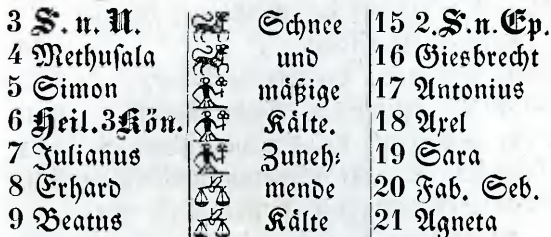 3 S. n. N. Schnee 15 2.S.n.Ep.
4 Methusala und 16 Giesbrecht
5 Simon mäßige 17 Antonius
6 Heil.3Kön. Kälte. 18 Axel
7 Julianus Zuneh⸗ 19 Sara
8 Erhard mende 20 Fab. Seb.
9 Beatus Kälte 21 Agneta